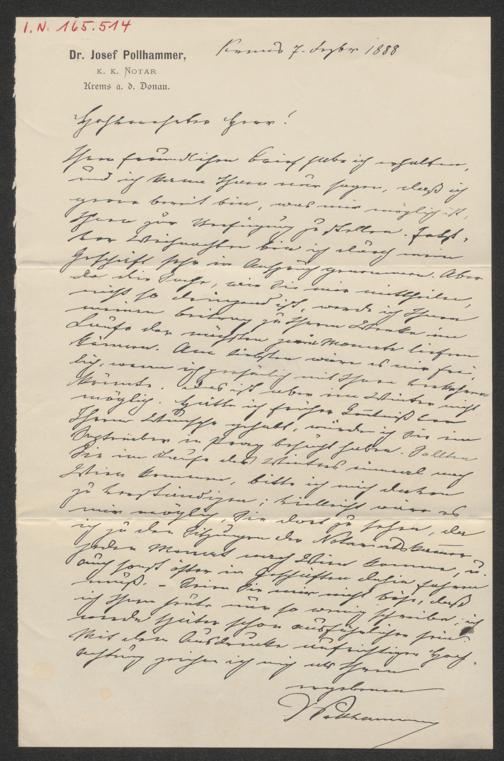 I.N. 165.514
Dr. Josef Pollhammer,
K. K. NOTAR
Krems a. d. Donau.
Krems 7. Dezbr 1888
Hochverehrter Herr!
Ihren freundlichen Brief habe ich erhalten,
und ich kann Ihnen nur sagen, daß ich
gerne bereit bin, was mir möglich ist,
Ihnen zur Verfügung zu stellen. Jetzt,
vor Weihnachten bin ich durch mein
Geschäft sehr in Anspruch genommen. Aber
da die Sache, wie Sie mir mittheilen,
nicht so dringend ist, werde ich Ihnen
meinen Beitrag zu Ihrem Werke im
Laufe der nächsten zwei Monate liefern
können. Am liebsten wäre es mir frei-
lich, wenn ich persönlich mit Ihnen verkehren
könnte. Das ist aber im Winter nicht
möglich. Hätte ich früher Kenntniß von
Ihrem Wunsche gehabt, würde ich Sie im
September in besucht haben. Sollten
Sie im Laufe des Winters einmal nach
Wien kommen, bitte ich mich davon
zu verständigen; vielleicht wäre es
mir möglich, Sie dort zu sehen, da
ich zu den Sitzungen der Notariatskammer
jeden Monat nach Wien komme, u.
auch sonst öfter in Geschäften dahin fahren
muß. – Seien Sie mir nicht böse, daß
ich Ihnen heute nur so wenig schreibe, ich
werde später schon ausführlicher sein.
Mit dem Ausdrucke aufrichtiger Hoch-
achtung zeichne ich mich als Ihren
ergebenen
JPollhammer